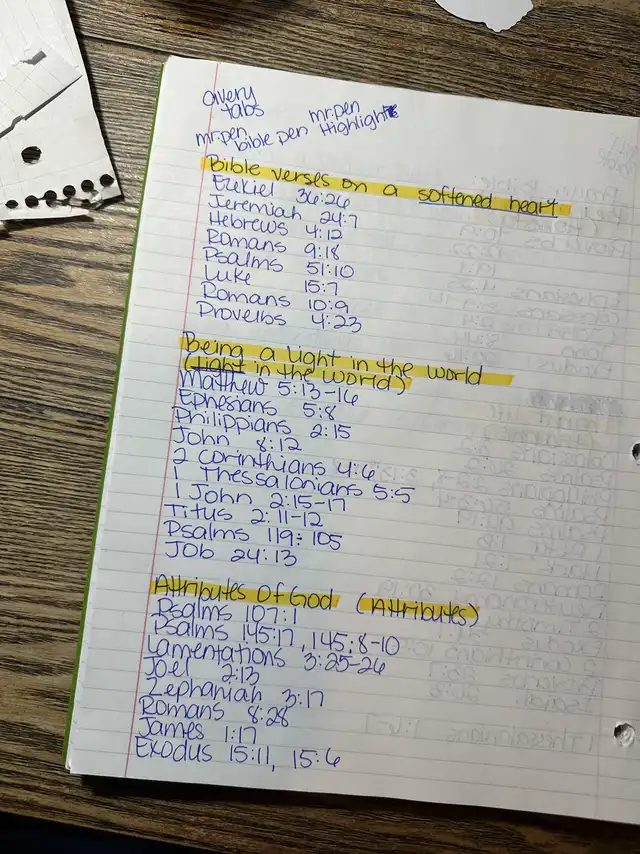 avery
tabs
mr.pen
bible pen
mr.pen
Highlight
Bible verses on a softened heart
Ezekiel 36:26
Jeremiah 24:7
Hebrews 4:12
Romans 9:18
Psalms 51:10
Luke 15:7
Romans 10:9
Proverbs 4:23
Being a light in the world
(light in the world)
Matthew 5:13-16
Ephesians 5:8
Philippians 2:15
John 8:12
2 Corinthians 4:6
1 Thessalonians 5:5
1 John 2:15-17
Titus 2:11-12
Psalms 119:105
Job 24:13
Attributes Of God (Attributes)
Psalms 107:1
Psalms 145:17, 145:8-10
Lamentations 3:25-26
Joel 2:13
Zephaniah 3:17
Romans 8:28
James 1:17
Exodus 15:11, 15:6